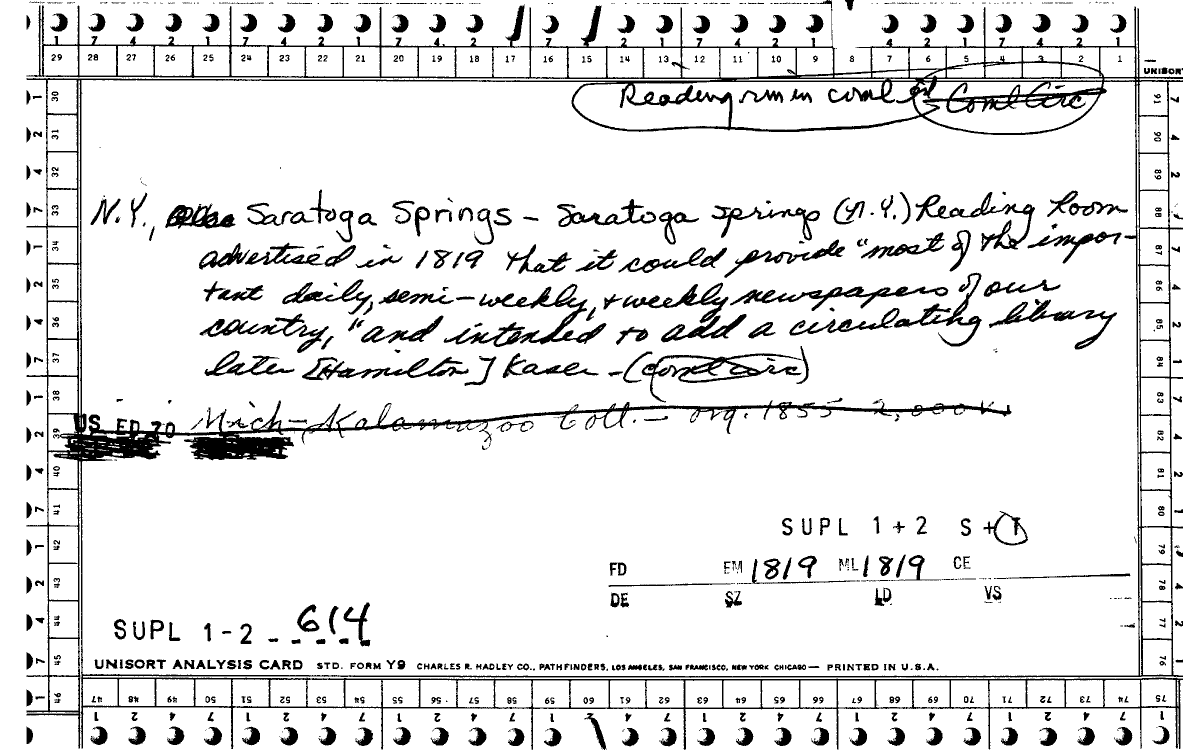 7 4 2 1 7 4 2 1 7 4 2 1 7 4 2 1 7 4 2 1 7 4 2 1
29 28 27 26 25 24 23 22 21 20 19 18 17 16 15 14 13 12 11 10 9 8 7 6 5 4 3 2 1
UNISORT
Reading rm in coml
Coml Circ
N.Y., Saratoga Springs - Saratoga Springs (N.Y.) Reading Room
advertised in 1819 that it could provide "most of the impor-
tant daily, semi-weekly, + weekly newspapers of our
country," and intended to add a circulating library
later [Hamilton] Kaser - (coml circ)
US ED 70 Mich - Kalamazoo Coll. - org. 1855 2,000 v.
SUPL 1 + 2 S + T
FD EM 1819 ML 1819 CE
DE SZ LD VS
SUPL 1-2 - 614
UNISORT ANALYSIS CARD STD. FORM Y9 CHARLES R. HADLEY CO., PATHFINDERS, LOS ANGELES, SAN FRANCISCO, NEW YORK CHICAGO — PRINTED IN U.S.A.
30 31 32 33 34 35 36 37 38 39 40 41 42 43 44 45 46
91 90 89 88 87 86 85 84 83 82 81 80 79 78 77 76 75
47 48 49 50 51 52 53 54 55 56 57 58 59 60 61 62 63 64 65 66 67 68 69 70 71 72 73 74